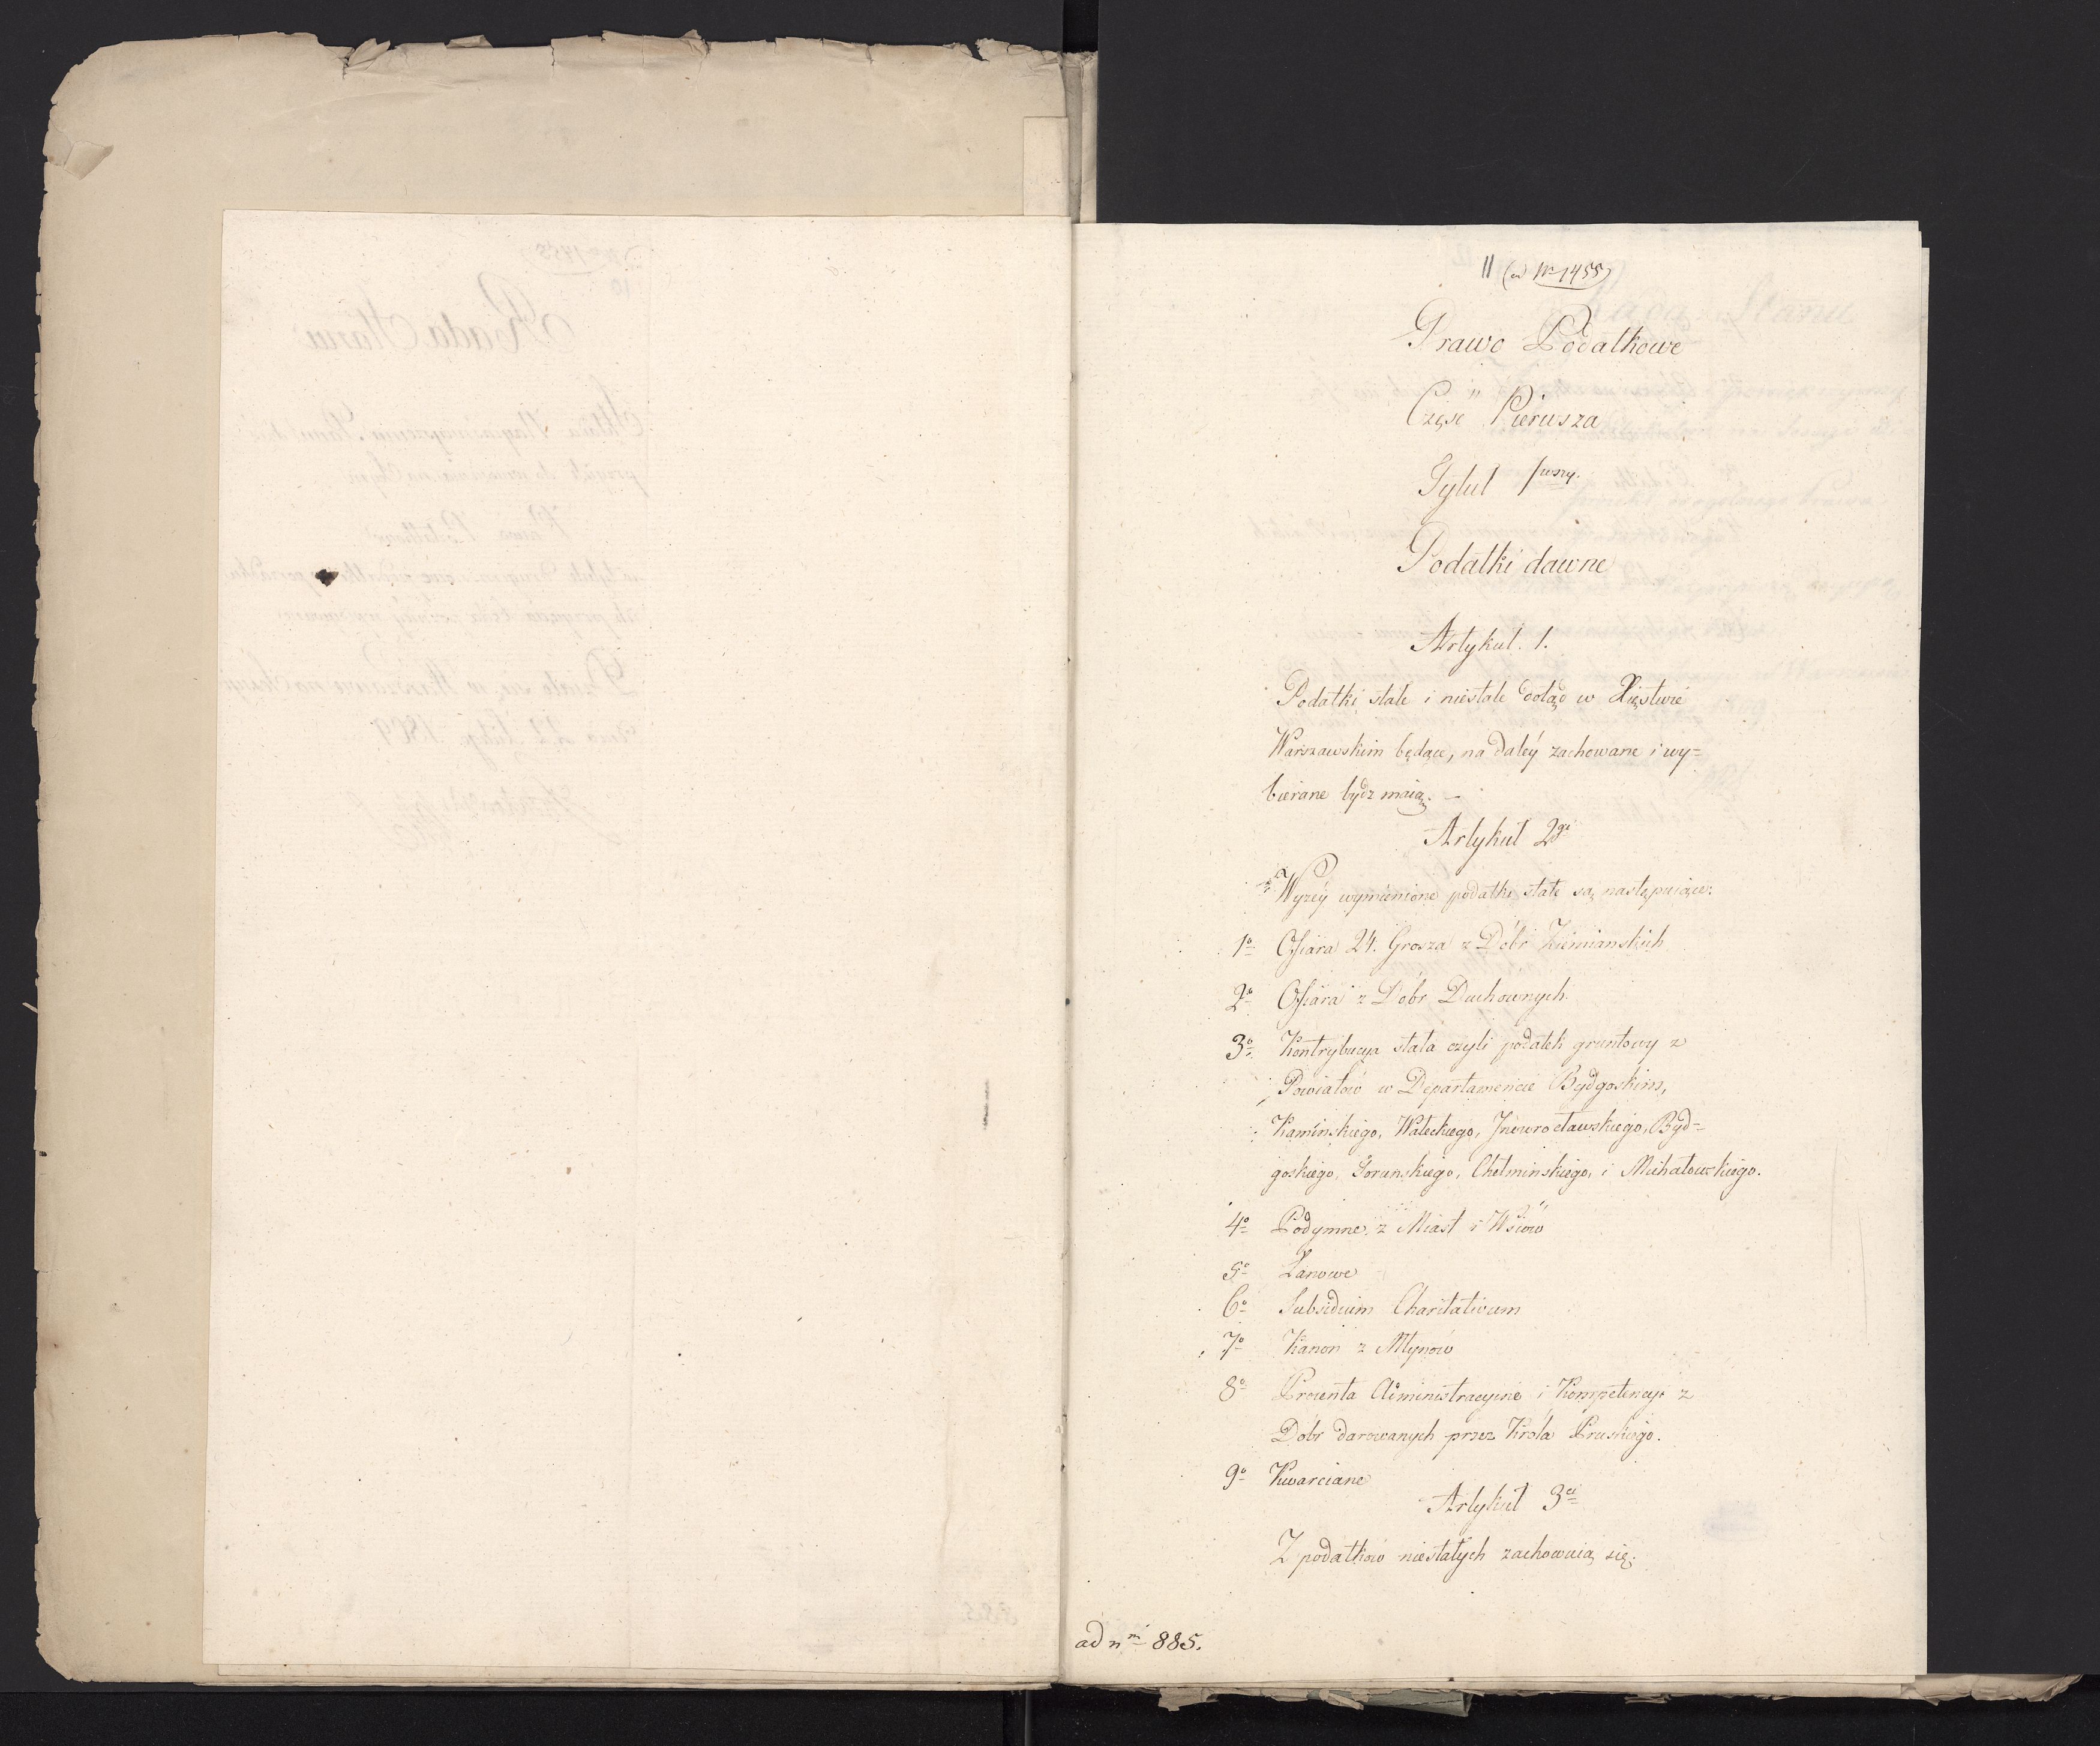 11 (ad Nro 1455)
Prawo Podatkowe
Część Pierwsza
Tytuł 1wszy.
Podatki dawne
Artykuł. 1.
Podatki stałe i niestałe dotąd w Xięstwie
Warszawskim będące, na daléy zachowane i wy=
bierane bydź maią. —
Artykuł 2gi
Wyżéy wymienione podatki stałe są następuiące:
1o Ofiara 24. Grosza z Dóbr Ziemianskich
2o Ofiara z Dóbr Duchownych.
3o Kontrybucya stała czyli podatek gruntowy z
Powiatów w Departamencie Bydgoskim,
Kaminskiego, Wałeckiego, Jnowrocławskiego, Byd=
goskiego, Torunskiego, Chełminskiego, i Michałowskiego.
4o Podymne z Miast i Wsiów
5o Łanowe
6o Subsidium Charitativum
7o Kanon z Młynów
8o Procenta Administracyine i Kompetencye z
Dóbr darowanych przez Króla Pruskiego.
9o Kwarciane
Artykuł 3ci
Z podatków niestałych zachowuią się:
ad nm 885.